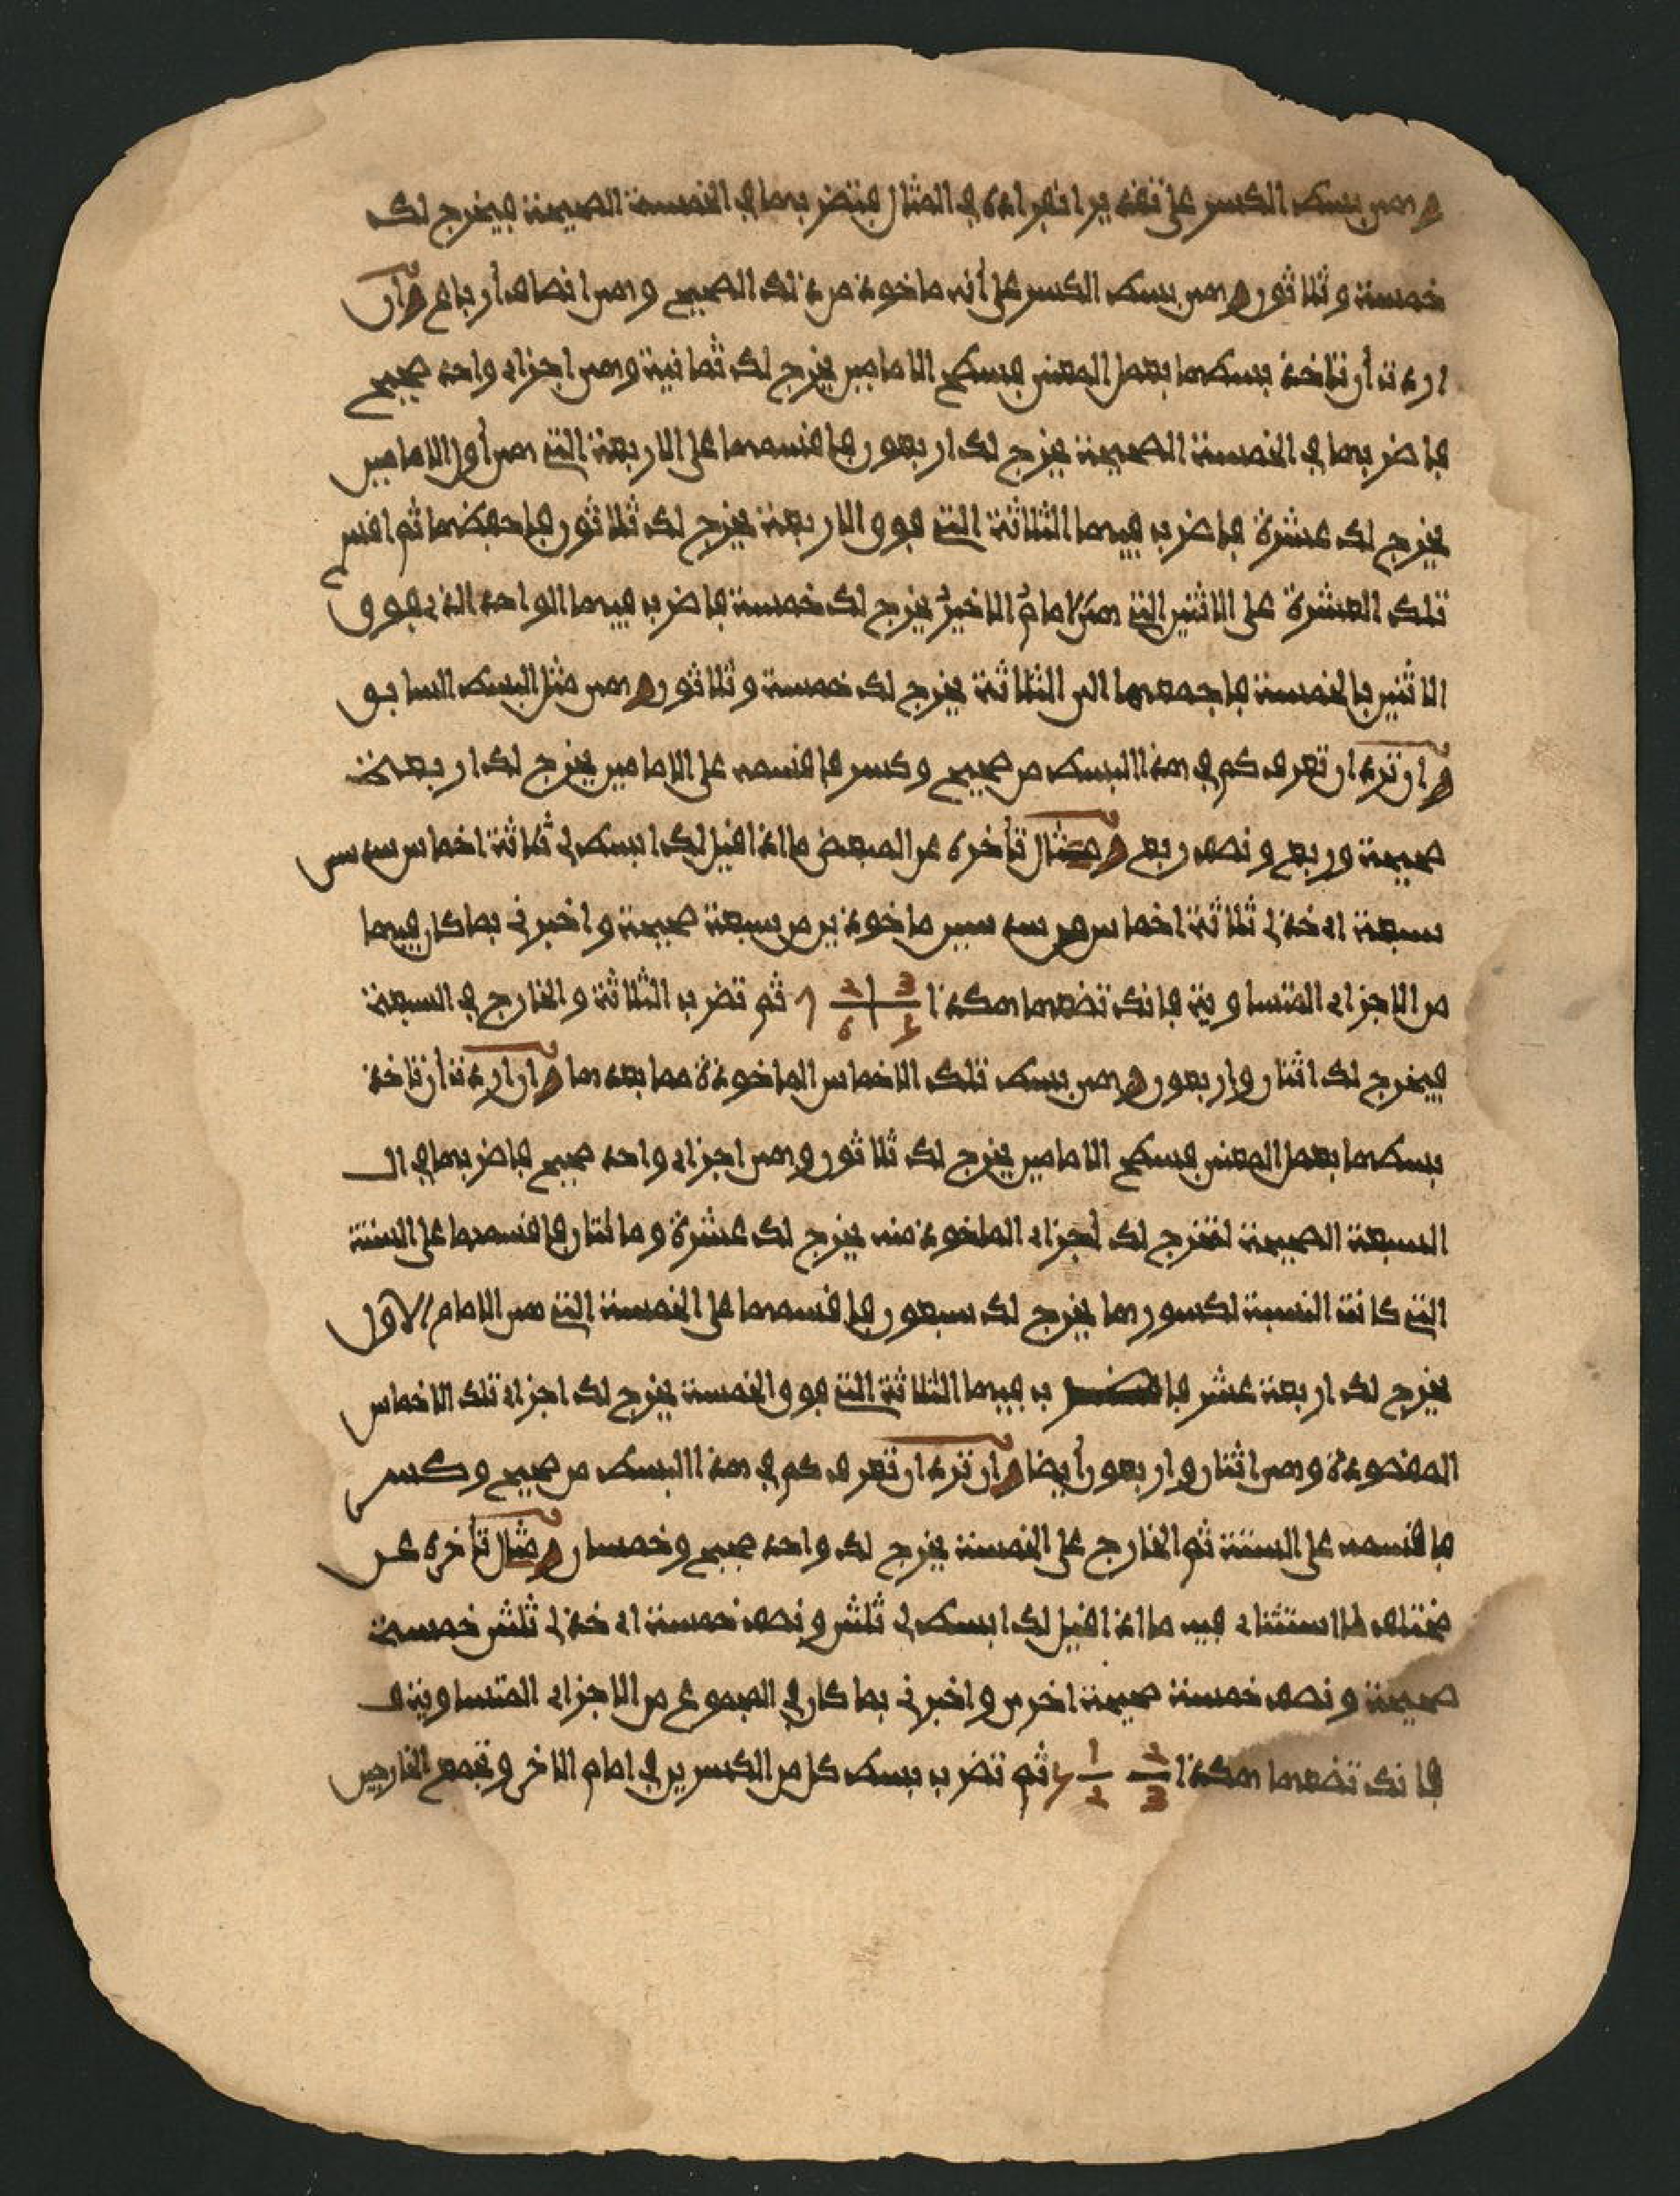 وهي بسط الكسر على تقدير انفراده في المثال فتضربها في الخمسة الصحيحة فيخرج لك
خمسة وثلاثون وهي بسط الكسر على أنه ماخوذ من ذلك الصحيح وهي انصاف أرباع وان
اردت أن تاخذ بسطها بعمل المعنى فسطح الامامين يخرج لك ثمانية وهي اجزاء واحد صحيح
فاضربها في الخمسة الصحيحة يخرج لك اربعون فاقسمها على الاربعة التي هي أول الامامين
يخرج لك عشرة فاضرب فيها الثلاثة التي فوق الاربعة يخرج لك ثلاثون فاحفظها ثم اقسم
تلك العشرة على الاثنين التي هي الامام الاخير يخرج لك خمسة فاضرب فيها الواحد الذي فوق
الاثنين بالخمسة فاجمعها الى الثلاثة يخرج لك خمسة وثلاثون وهي مثل البسط السابق
وان ترد ان تعرف كم في هذا البسط من صحيح وكسر فاقسمه على الامامين يخرج لك اربعة
صحيحة وربع ونصف ربع ومثال تأخره عن المبعض ما اذا قيل لك ابسط لي ثلاثة اخماس سدسي
سبعة اي خذ لي ثلاثة اخماس هي سدسين ماخوذين من سبعة صحيحة واخبرني بما كان فيها
من الاجزاء المتساوية فانك تضعها هكذا 3 2 / 5 6 7 ثم تضرب الثلاثة والخارج في السبعة
فيخرج لك اثنان واربعون وهي بسط تلك الاخماس الماخوذة مما بعدها وان اردت أن تاخذ
بسطها بعمل المعنى فسطح الامامين يخرج لك ثلاثون وهي اجزاء واحد صحيح فاضربها في الـ
السبعة الصحيحة لتخرج لك أجزاء الماخوذ منه يخرج لك عشرة ومائتان فاقسمها على الستة
التي كانت النسبة لكسورها يخرج لك سبعون فاقسمها على الخمسة التي هي الامام الأول
يخرج لك اربعة عشر فا ب فيها الثلاثة التي فوق الخمسة يخرج لك اجزاء تلك الاخماس
المفضوءة وهي اثنان واربعون أيضا وان ترد ان تعرف كم في هذا البسط من صحيح وكسر
فاقسمه على الستة ثم الخارج على الخمسة يخرج لك واحد صحيح وخمسان ومثال تأخره عن
مختلف لا استثناء فيه ما اذا قيل لك ابسط لي ثلثي ونصف خمسة اي خذ لي ثلثي خمسة
صحيحة ونصف خمسة صحيحة اخرى واخبرني بما كان في المجموع من الاجزاء المتساوية فـ
فانك تضعها هكذا 2/3 1/2 5 ثم تضرب بسط كل من الكسرين في امام الاخر وتجمع الخارجين